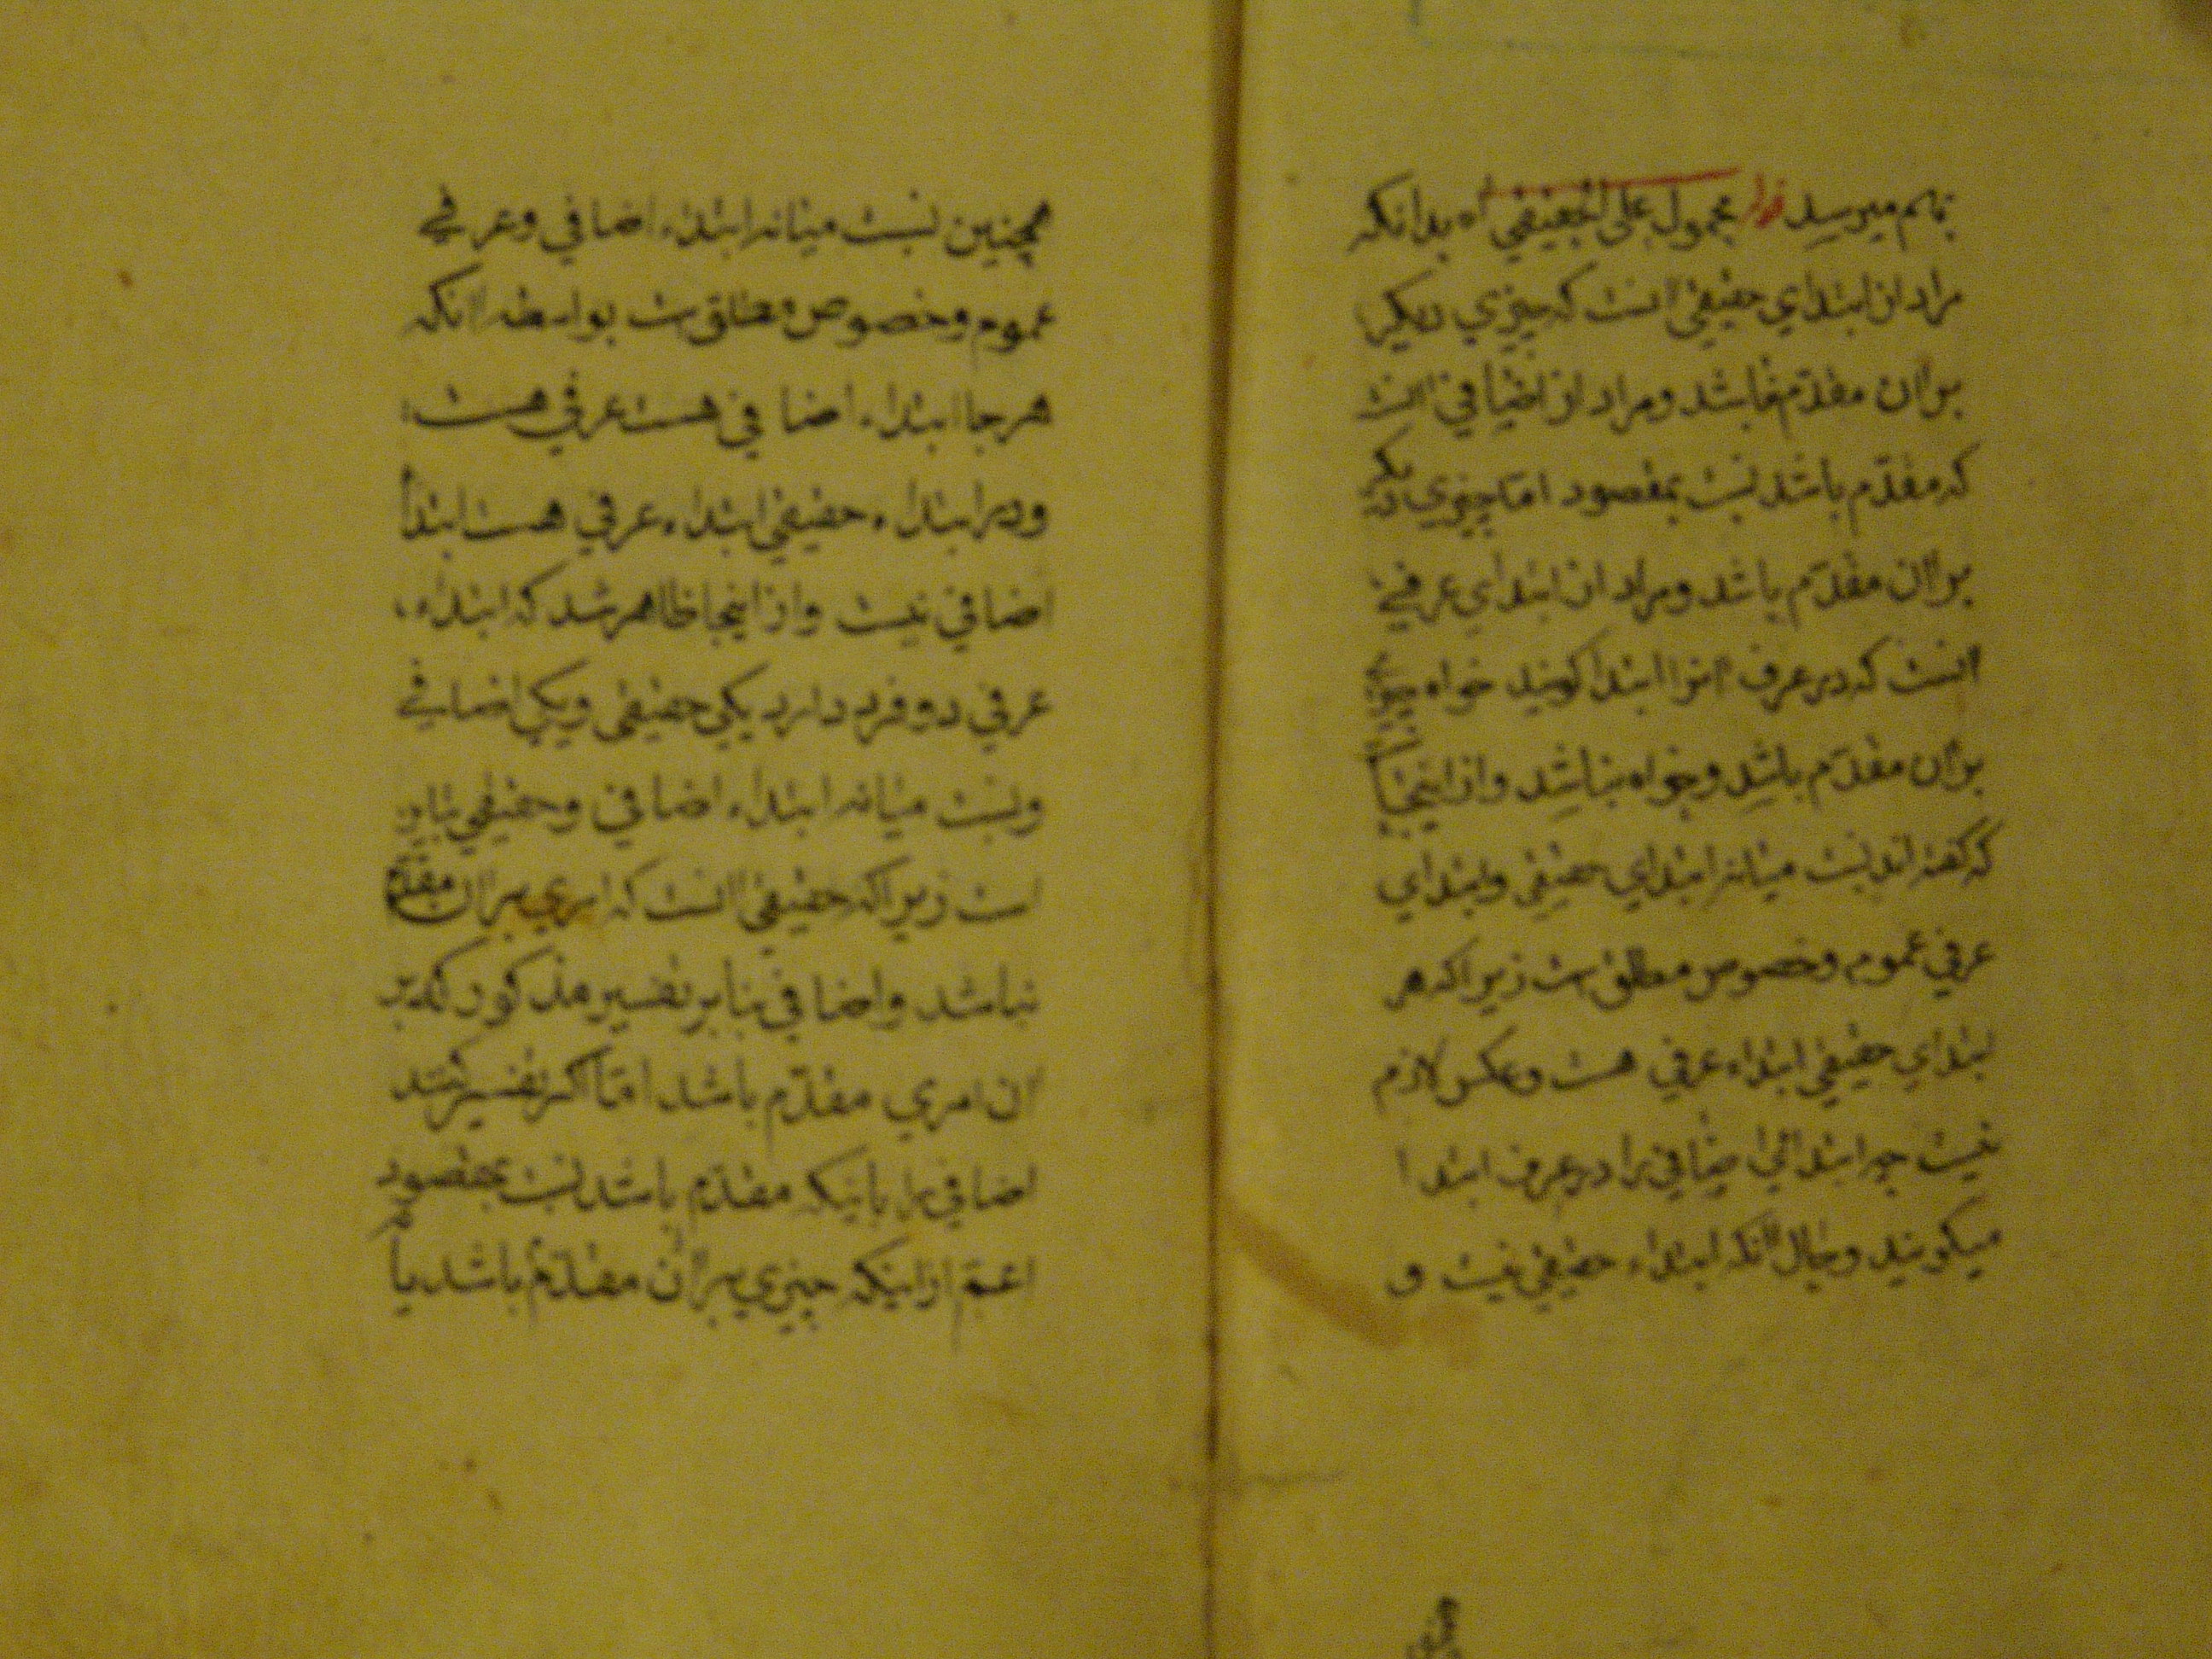 بهم میرسد قوله محمول علی الحقیقی اه بدانکه
مراد از ابتدای حقیقی انست که چیزی دیکر
بران مقدّم نباشد ومراد از اضافی انست
که مقدّم باشد نسبت بمقصود امّا چیزی دیکر
بران مقدّم باشد ومراد از ابتدای عرفی
انست که در عرف انرا ابتدا کویند خواه چیزی
بران مقدّم باشد وخواه نباشد واز اینجا
که کفته اند نسبت میانه ابتدای حقیقی وابتدای
عرفی عموم وخصوص مطلق ست زیرا که هر
ابتدای حقیقی ابتداء عرفی هست وعکس لازم
نیست چه ابتدائی اضافی را در عرف ابتدا
میکویند وحال انکه ابتداء حقیقی نیست و
همچنین نسبت میانه ابتداء اضافی وعرفی
عموم وخصوص مطلق ست بواسطه انکه
هر جا ابتداء اضافی هست عرفی هست
ودر ابتداء حقیقی ابتداء عرفی هست ابتدا
اضافی نیست واز اینجا ظاهر شد که ابتداء
عرفی دو فرد دارد یکی حقیقی ویکی اضافی
ونسبت میانه ابتداء اضافی وحقیقی تباین
است زیرا که حقیقی انست که امری بران مقدّم
نباشد واضافی بنابر تفسیر مذکور که بر
ان امری مقدّم باشد امّا اکر تفسیر کنند
اضافی را باینکه مقدّم باشد نسبت بمقصود
اعمّ از اینکه چیزی بران مقدّم باشد یا